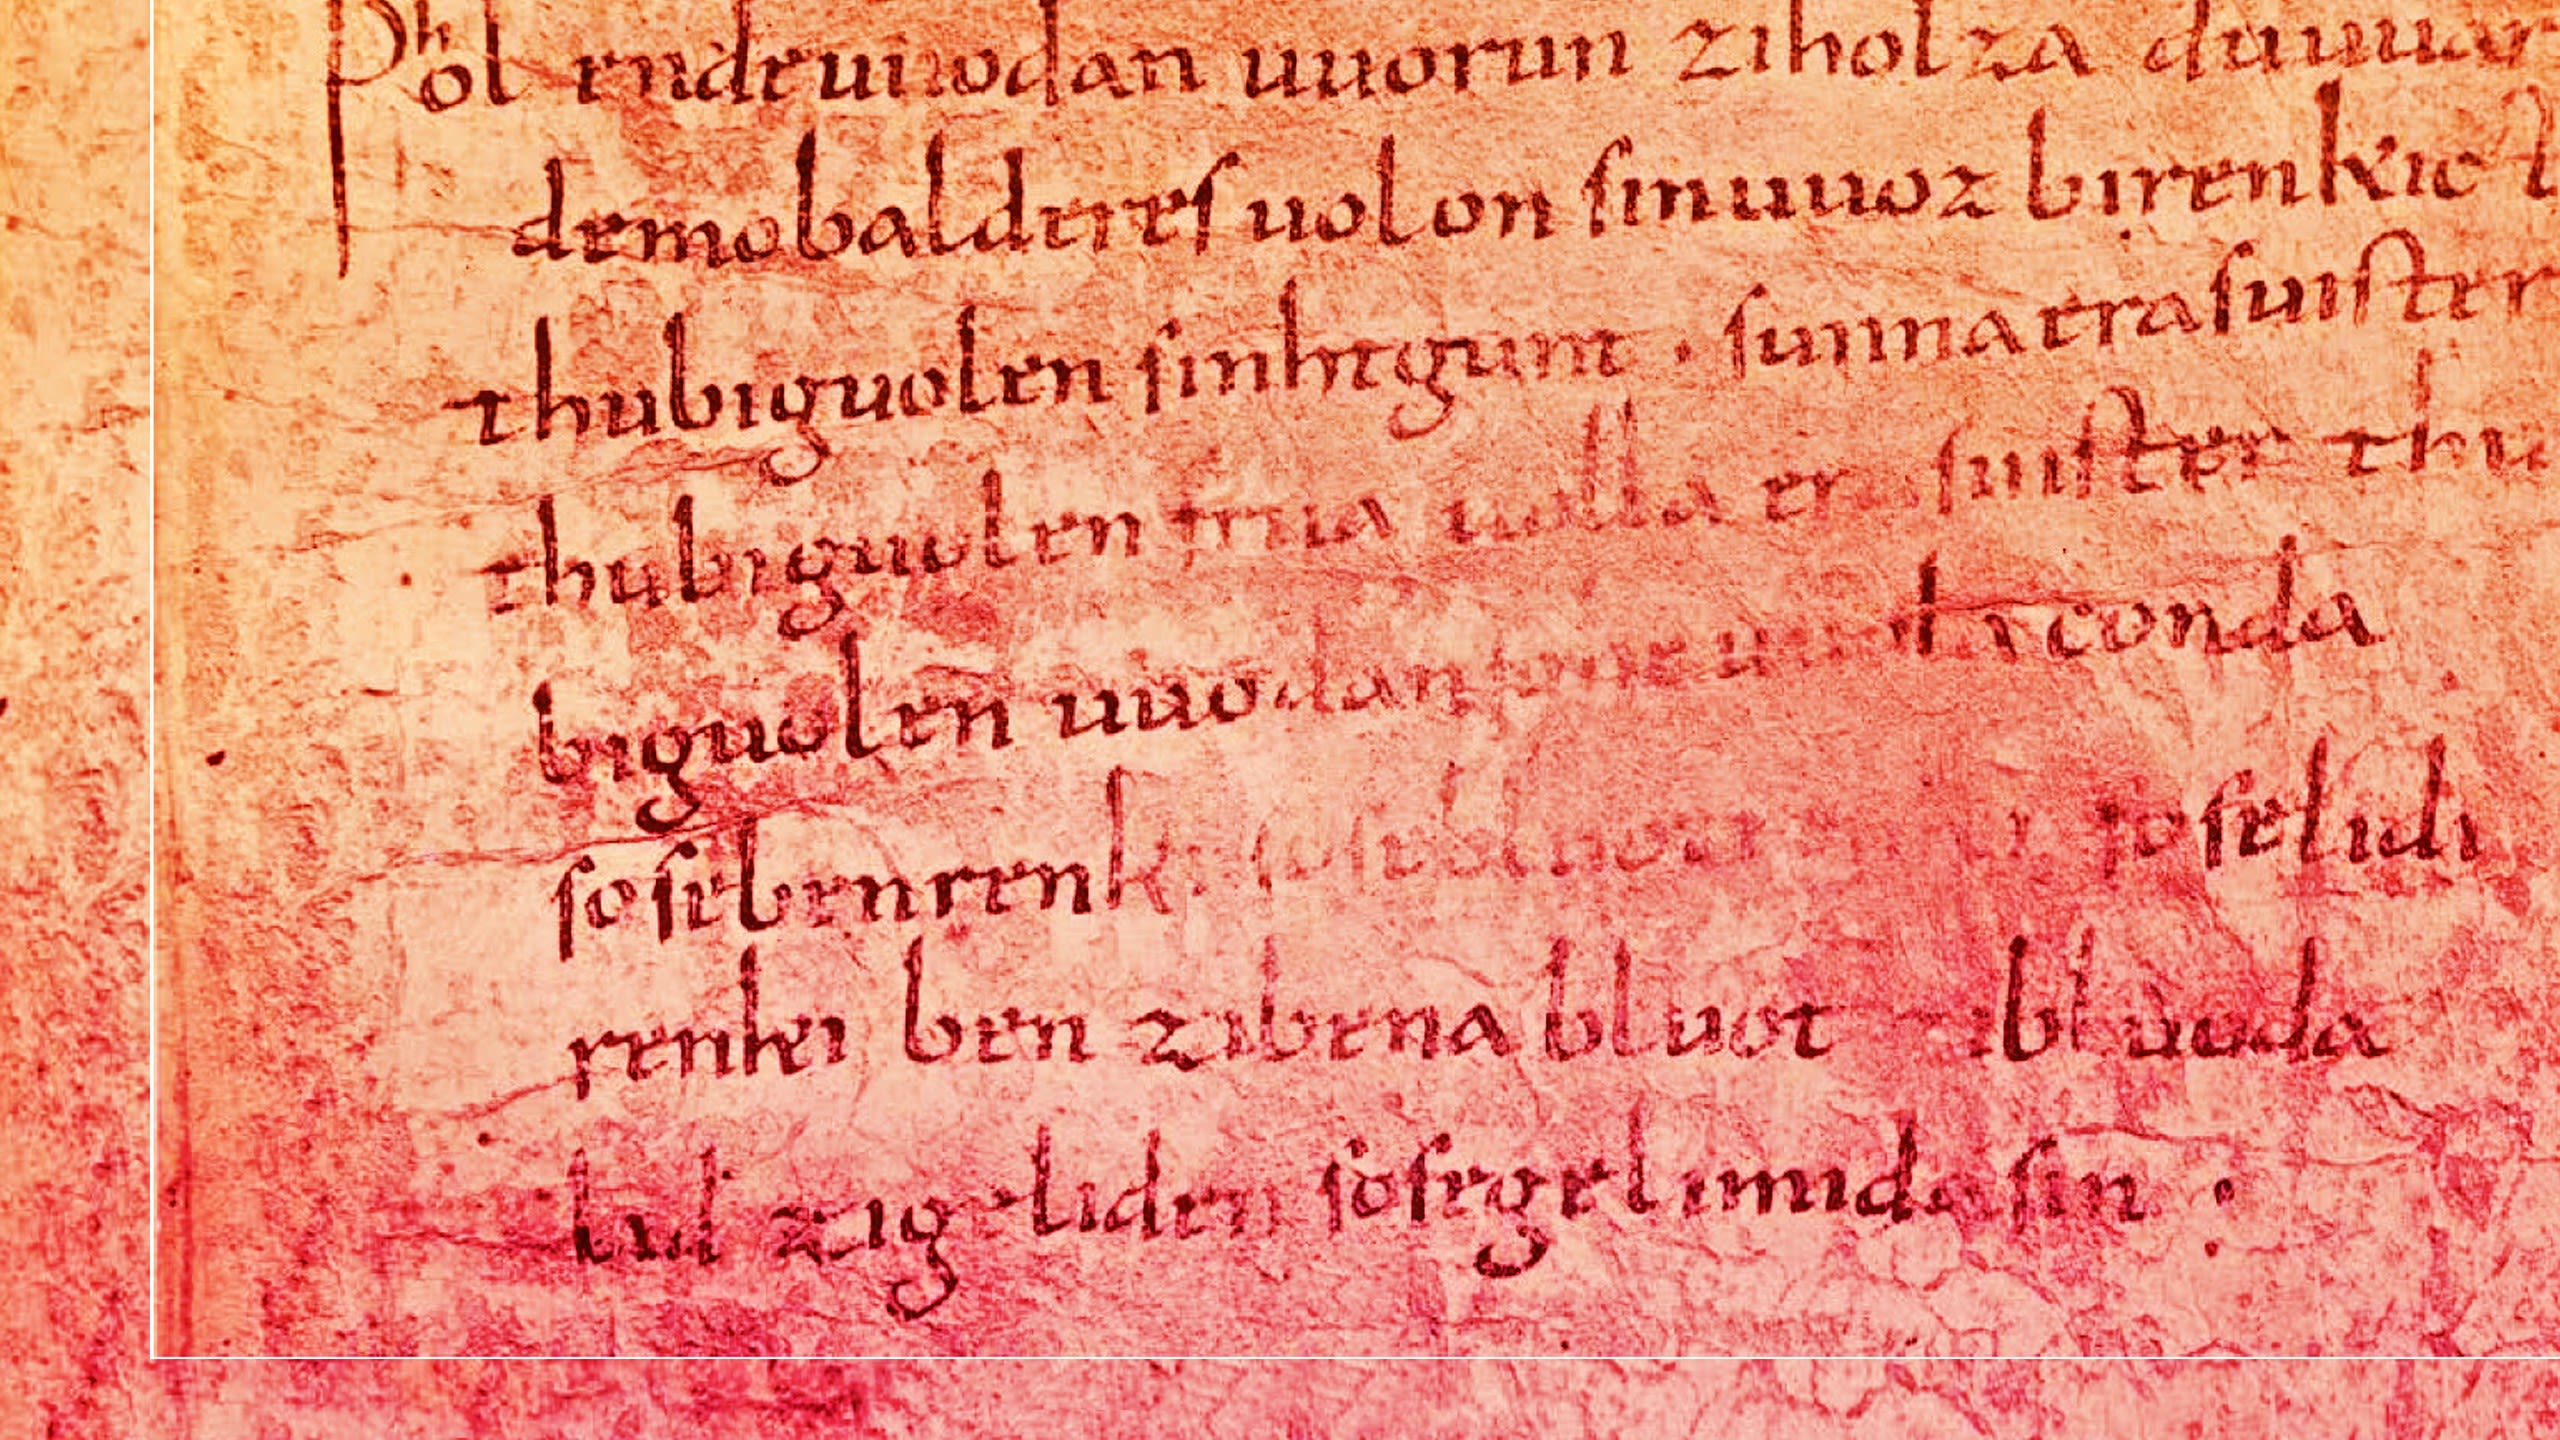 Phol endeuuodan uuorun ziholza duuuar
demobalderesuolon sinuuoz birenkict
thubiguolen sinhtgunt . sunnaerasuister
thubiguolen friia uolla er suister thu
biguolen uuodan heconda
sosebenrenki sosebluot soselidi
renki ben zibena bluot zibluoda
lid zigeliden sosegelimidasin .